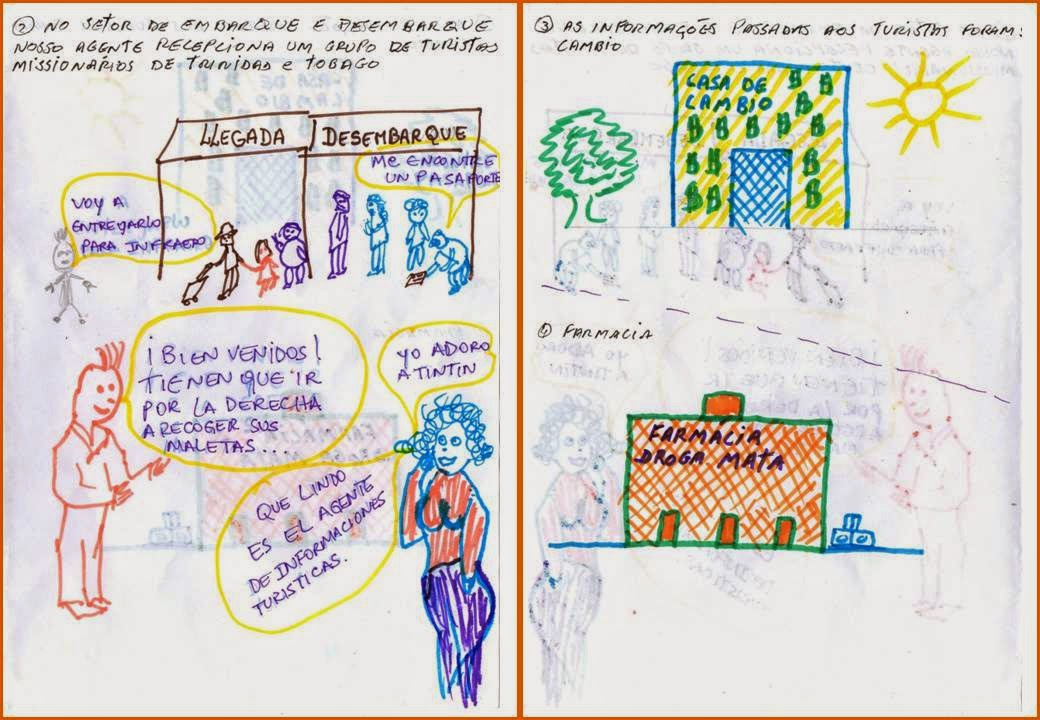 ② NO SETOR DE EMBARQUE E DESEMBARQUE
NOSSO AGENTE RECEPCIONA UM GRUPO DE TURISTAS
MISSIONÁRIOS DE TRINIDAD E TOBAGO
LLEGADA
DESEMBARQUE
ME ENCONTRE
UN PASAPORTE
VOY A
ENTREGARLO
PARA INFRAERO
¡BIEN VENIDOS!
TIENEN QUE IR
POR LA DERECHA
A RECOGER SUS
MALETAS...
YO ADORO
A TINTIN
QUE LINDO
ES EL AGENTE
DE INFORMACIONES
TURISTICAS.
③ AS INFORMAÇÕES PASSADAS AOS TURISTAS FORAM:
CAMBIO
CASA DE
CAMBIO
④ FARMACIA
FARMACIA
DROGA MATA